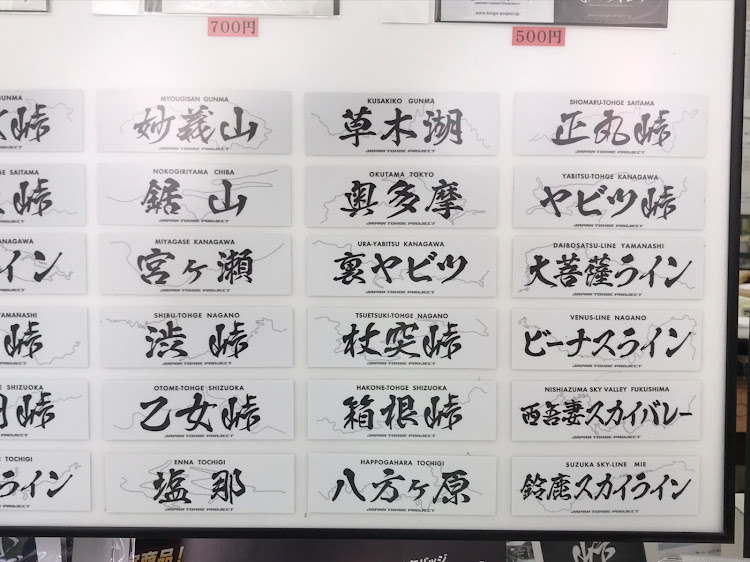 JAPAN TOHGE PROJECT
www.tohge-project.jp
700円
500円
GUNMA
峠
MYOUGISAN GUNMA
妙義山
JAPAN TOHGE PROJECT
KUSAKIKO GUNMA
草木湖
JAPAN TOHGE PROJECT
SHOMARU-TOHGE SAITAMA
正丸峠
JAPAN TOHGE PROJECT
SAITAMA
峠
NOKOGIRIYAMA CHIBA
鋸山
JAPAN TOHGE PROJECT
OKUTAMA TOKYO
奥多摩
JAPAN TOHGE PROJECT
YABITSU-TOHGE KANAGAWA
ヤビツ峠
JAPAN TOHGE PROJECT
KANAGAWA
イン
MIYAGASE KANAGAWA
宮ヶ瀬
JAPAN TOHGE PROJECT
URA-YABITSU KANAGAWA
裏ヤビツ
JAPAN TOHGE PROJECT
DAIBOSATSU-LINE YAMANASHI
大菩薩ライン
JAPAN TOHGE PROJECT
YAMANASHI
峠
SHIBU-TOHGE NAGANO
渋峠
JAPAN TOHGE PROJECT
TSUETSUKI-TOHGE NAGANO
杖突峠
JAPAN TOHGE PROJECT
VENUS-LINE NAGANO
ビーナスライン
JAPAN TOHGE PROJECT
SHIZUOKA
峠
OTOME-TOHGE SHIZUOKA
乙女峠
JAPAN TOHGE PROJECT
HAKONE-TOHGE SHIZUOKA
箱根峠
JAPAN TOHGE PROJECT
NISHIAZUMA SKY VALLEY FUKUSHIMA
西吾妻スカイバレー
JAPAN TOHGE PROJECT
TOCHIGI
ライン
ENNA TOCHIGI
塩那
JAPAN TOHGE PROJECT
HAPPOGAHARA TOCHIGI
八方ヶ原
JAPAN TOHGE PROJECT
SUZUKA SKY-LINE MIE
鈴鹿スカイライン
JAPAN TOHGE PROJECT
商品!
バッジ